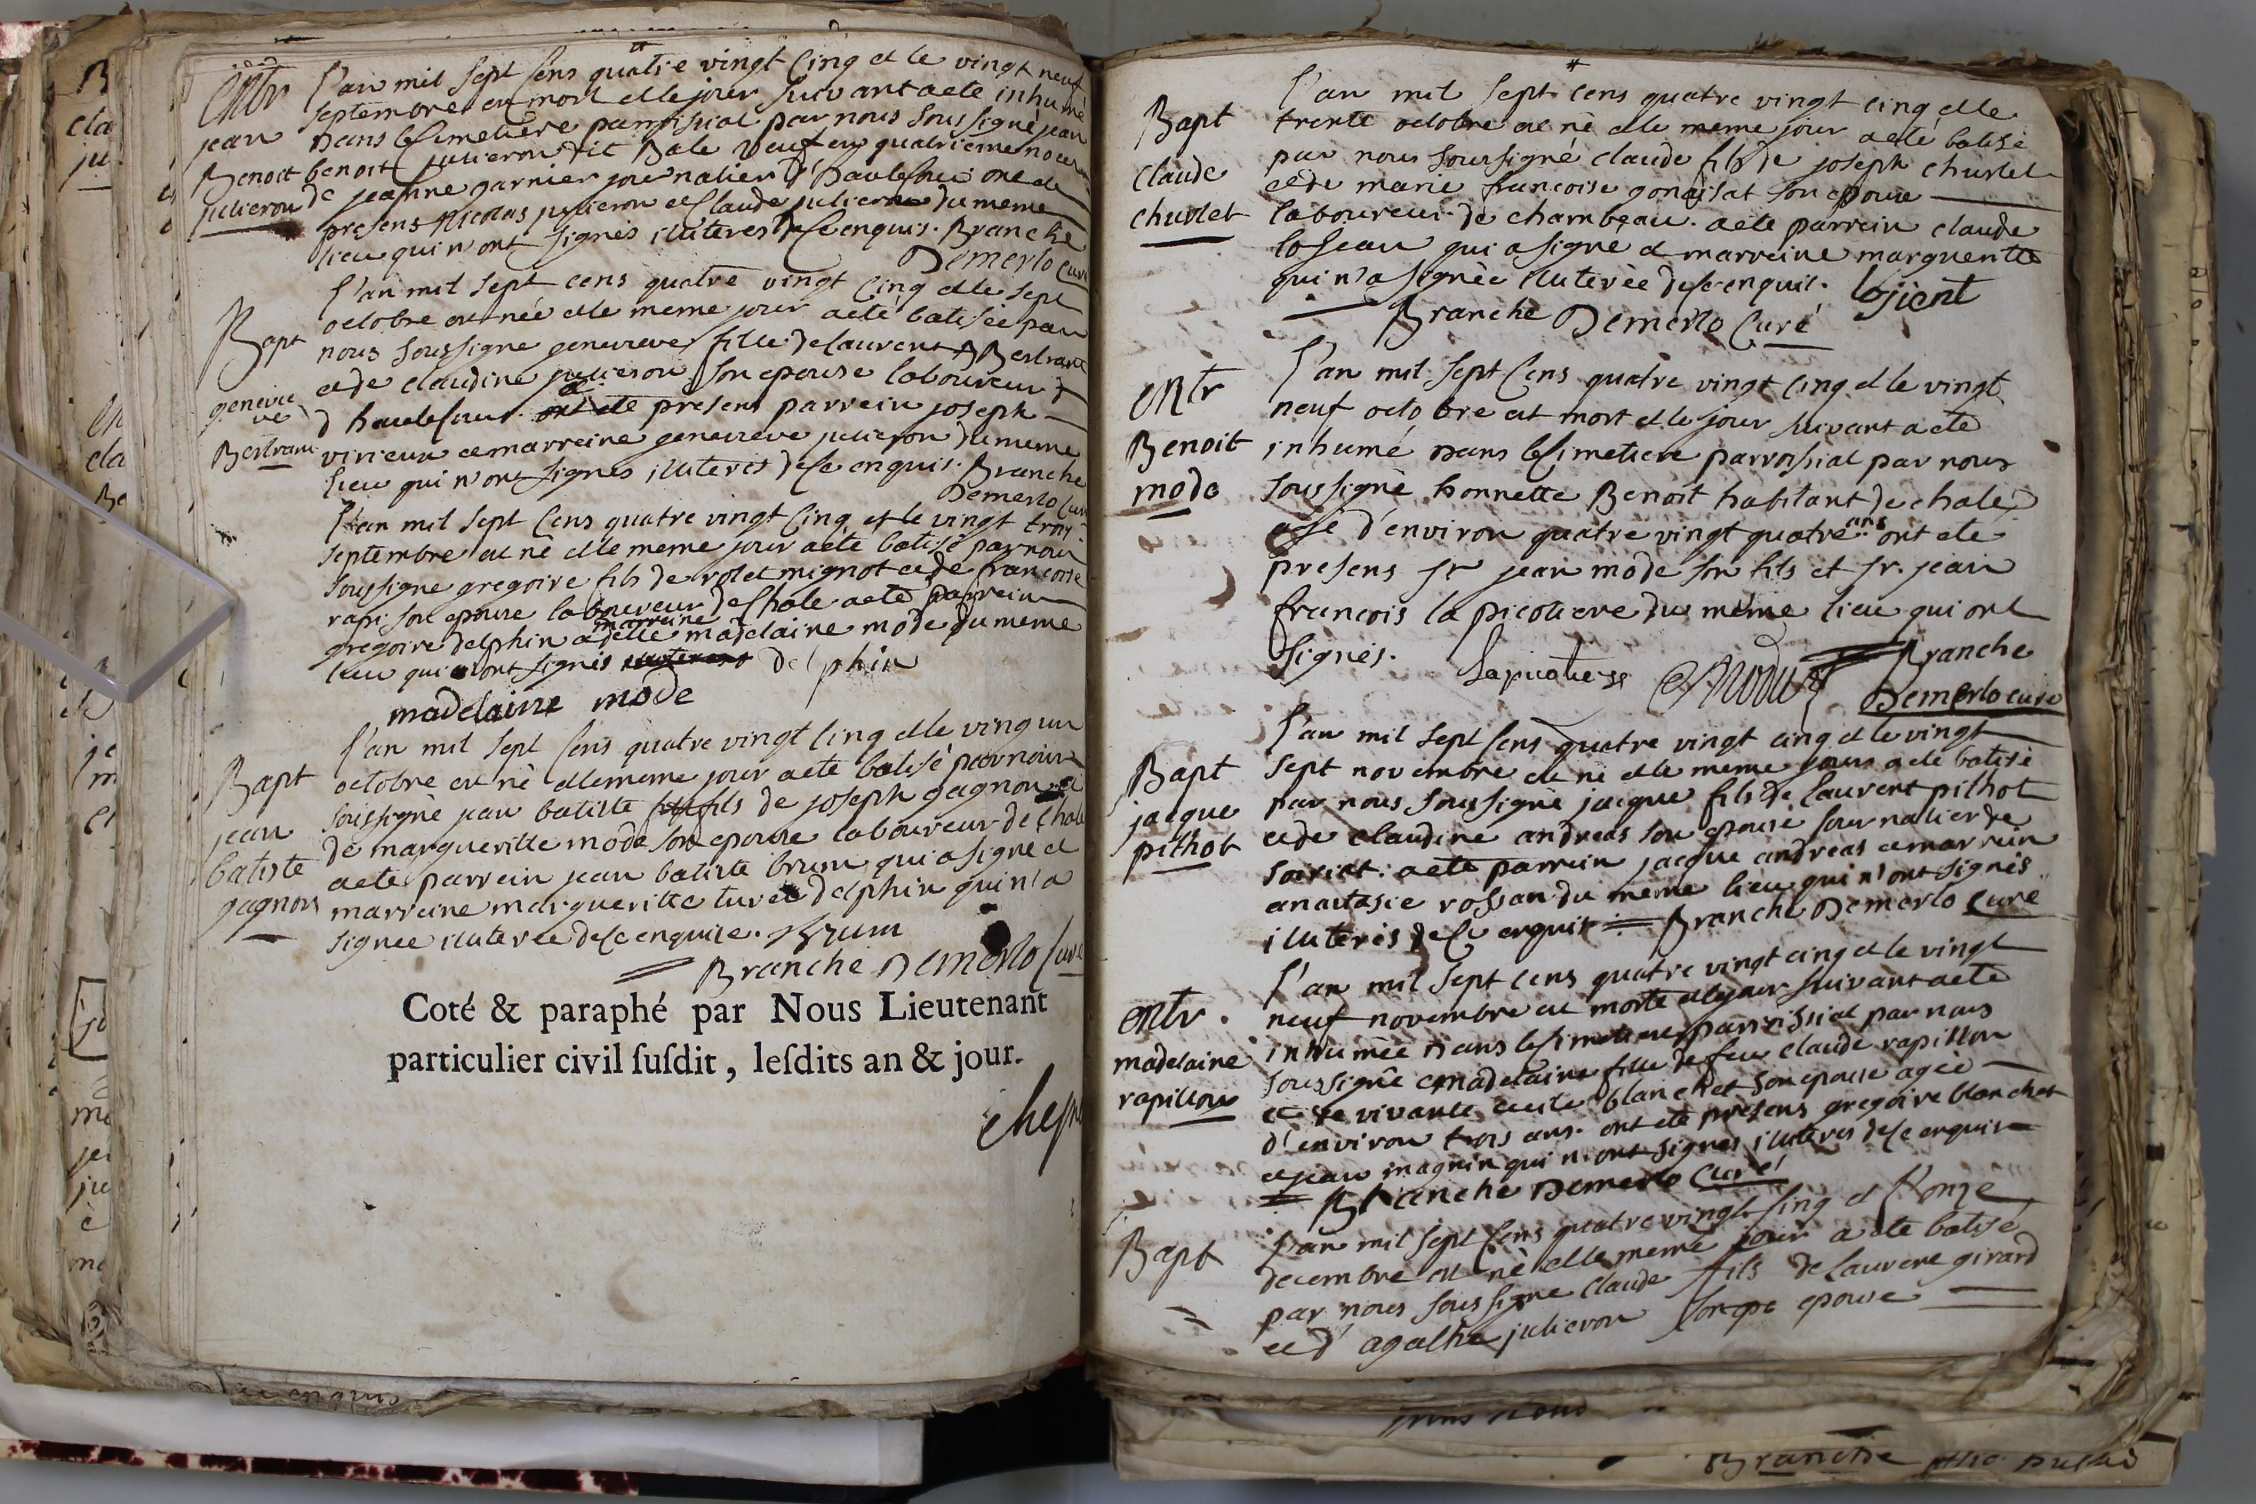 entr
jean
Benoit
julieron
l'an mil sept cens quatre vingt cinq et le vingt neuf
septembre est mort et le jour suivant a ete inhumé
dans le simetiere parroissial par nous soussigné jean
benoit julieron dit Bale veuf en quatrieme noces
de jeanne garnier journalier d'
presens nicolas julieron et Claude julieron du meme
lieu qui n'ont signès illiteres de ce enquis. Branche
Demerlo Curé
Bapt
genevie
ve
Bertrand
l'an mil sept cens quatre vingt cinq et le sept
octobre est née et le meme jour a eté batisée par
nous soussigné genevieve fille de laurent Bertrand
et de claudine julieron son epouse laboureur
d' ont eté presens parrein joseph
virieux et marreine genevieve julieron du meme
lieu qui n'ont signés illiterés de ce enquis. Branche
Demerlo Curé
l'an mil sept cens quatre vingt cinq et le vingt troy
septembre est né et le meme jour a eté batisé par nous
soussigné gregoire fils de rolet mignot et de francoise
rapi son epouse laboureur de Chale a eté parrein
gregoire delphin et marreine delle madelaine mode du meme
lieu qui ont signès delphin
madelaine mode
Bapt
jean
batiste
gagnon
l'an mil sept cens quatre vingt cinq et le ving un
octobre est né et le meme jour a eté batisé par nous
soussigné jean batiste fils de joseph gagnon et
de margueritte mode son epouse laboureur de Chale
a eté parrein jean batiste brun qui a signé et
marreine margueritte delphin qui n'a
signée illiterée de ce enquise. Brun
Branche Demerlo Curé
Coté & paraphé par Nous Lieutenant
particulier civil ſuſdit, leſdits an & jour.
Bapt
claude
churlet
l'an mil sept cens quatre vingt cinq et le
trente octobre est né et le meme jour a eté batisé
par nous soussigné claude fils de joseph churlet
et de marie francoise gonaisat son epouse
laboureur de chambeau. a eté parrein claude
loseau qui a signé et marreine margueritte
qui n'a signèe illiterèe de ce enquis.
Branche Demerlo Curé
entr
Benoit
mode
l'an mil sept cens quatre vingt cinq et le vingt
neuf octobre est mort et le jour suivant a eté
inhumé dans le simetiere parroissial par nous
soussigné honnette Benoit habitant de chale
agé d'environ quatre vingt quatre ans ont eté
presens sr jean mode son fils et sr. jean
francois la picotiere du meme lieu qui ont
signés. Lapicotiere Modu Branche
Demerlo curé
Bapt
jacque
pithot
l'an mil sept cens quatre vingt cinq et le vingt
sept novembre est né et le meme jour a eté batisé
par nous soussigné jacque fils de laurent pithot
et de claudine andreas son epouse journalier de
soiriat. a eté parrein jacque andreas et marrein
anastasie rossan du meme lieu qui n'ont signès
illiterès de ce enquis Branche Demerlo Curé
entr.
madelaine
rapillon
l'an mil sept cens quatre vingt cinq et le vingt
neuf novembre est morte et le jour suivant a eté
inhumée dans le simetiere parroissial par nous
soussigné madelaine fille de feu claude rapillon
et de vivante blanchet son epouse agèe
d'environ trois ans. ont eté presens gregoire blanchet
et jean magnin qui n'ont signés illiteres de ce enquis
Branche Demerlo Curé
Bapt
l'an mil sept cens quatre vingt cinq et l'onze
decembre est né et le meme jour a eté batisé
par nous soussigné claude fils de laurent girard
et d'agathe julieron son epouse